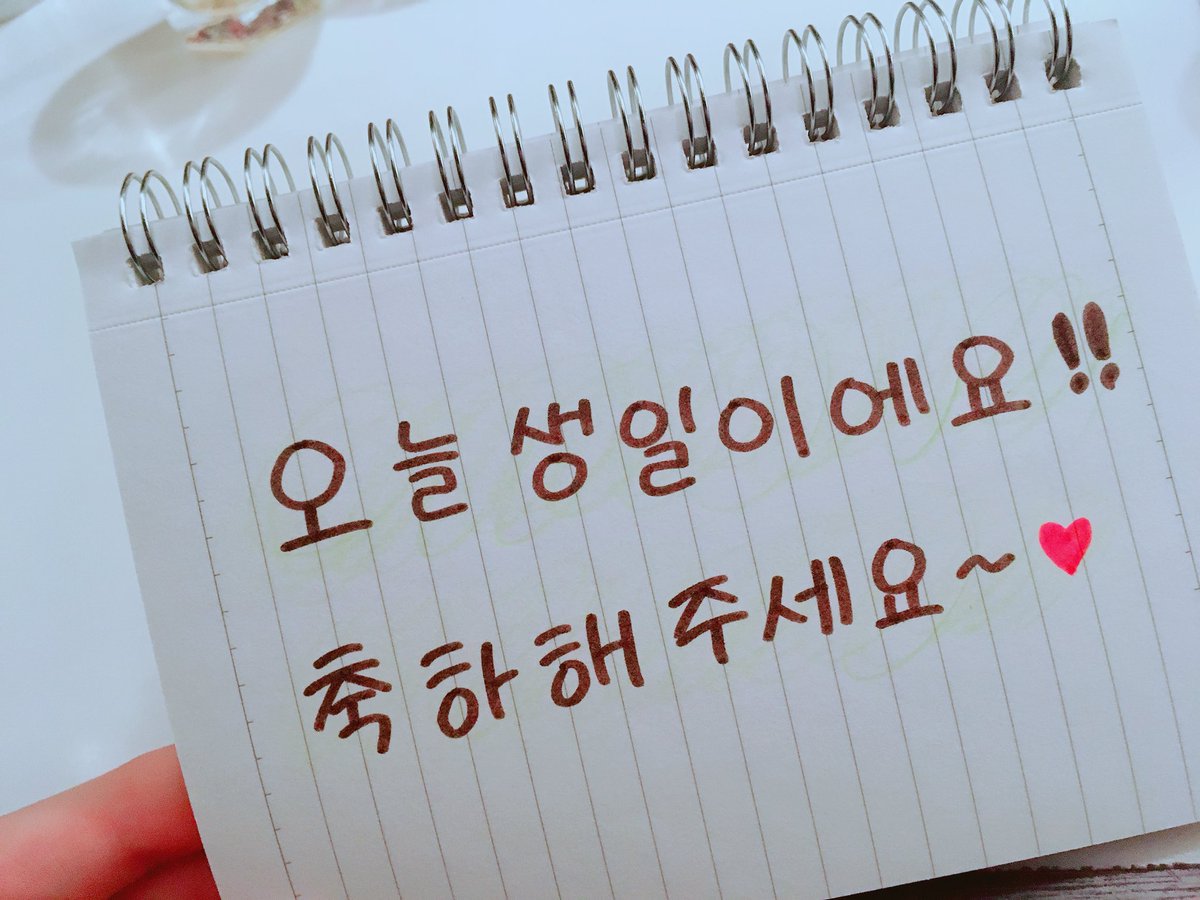 오늘 생일이에요!!
축하해주세요~♥